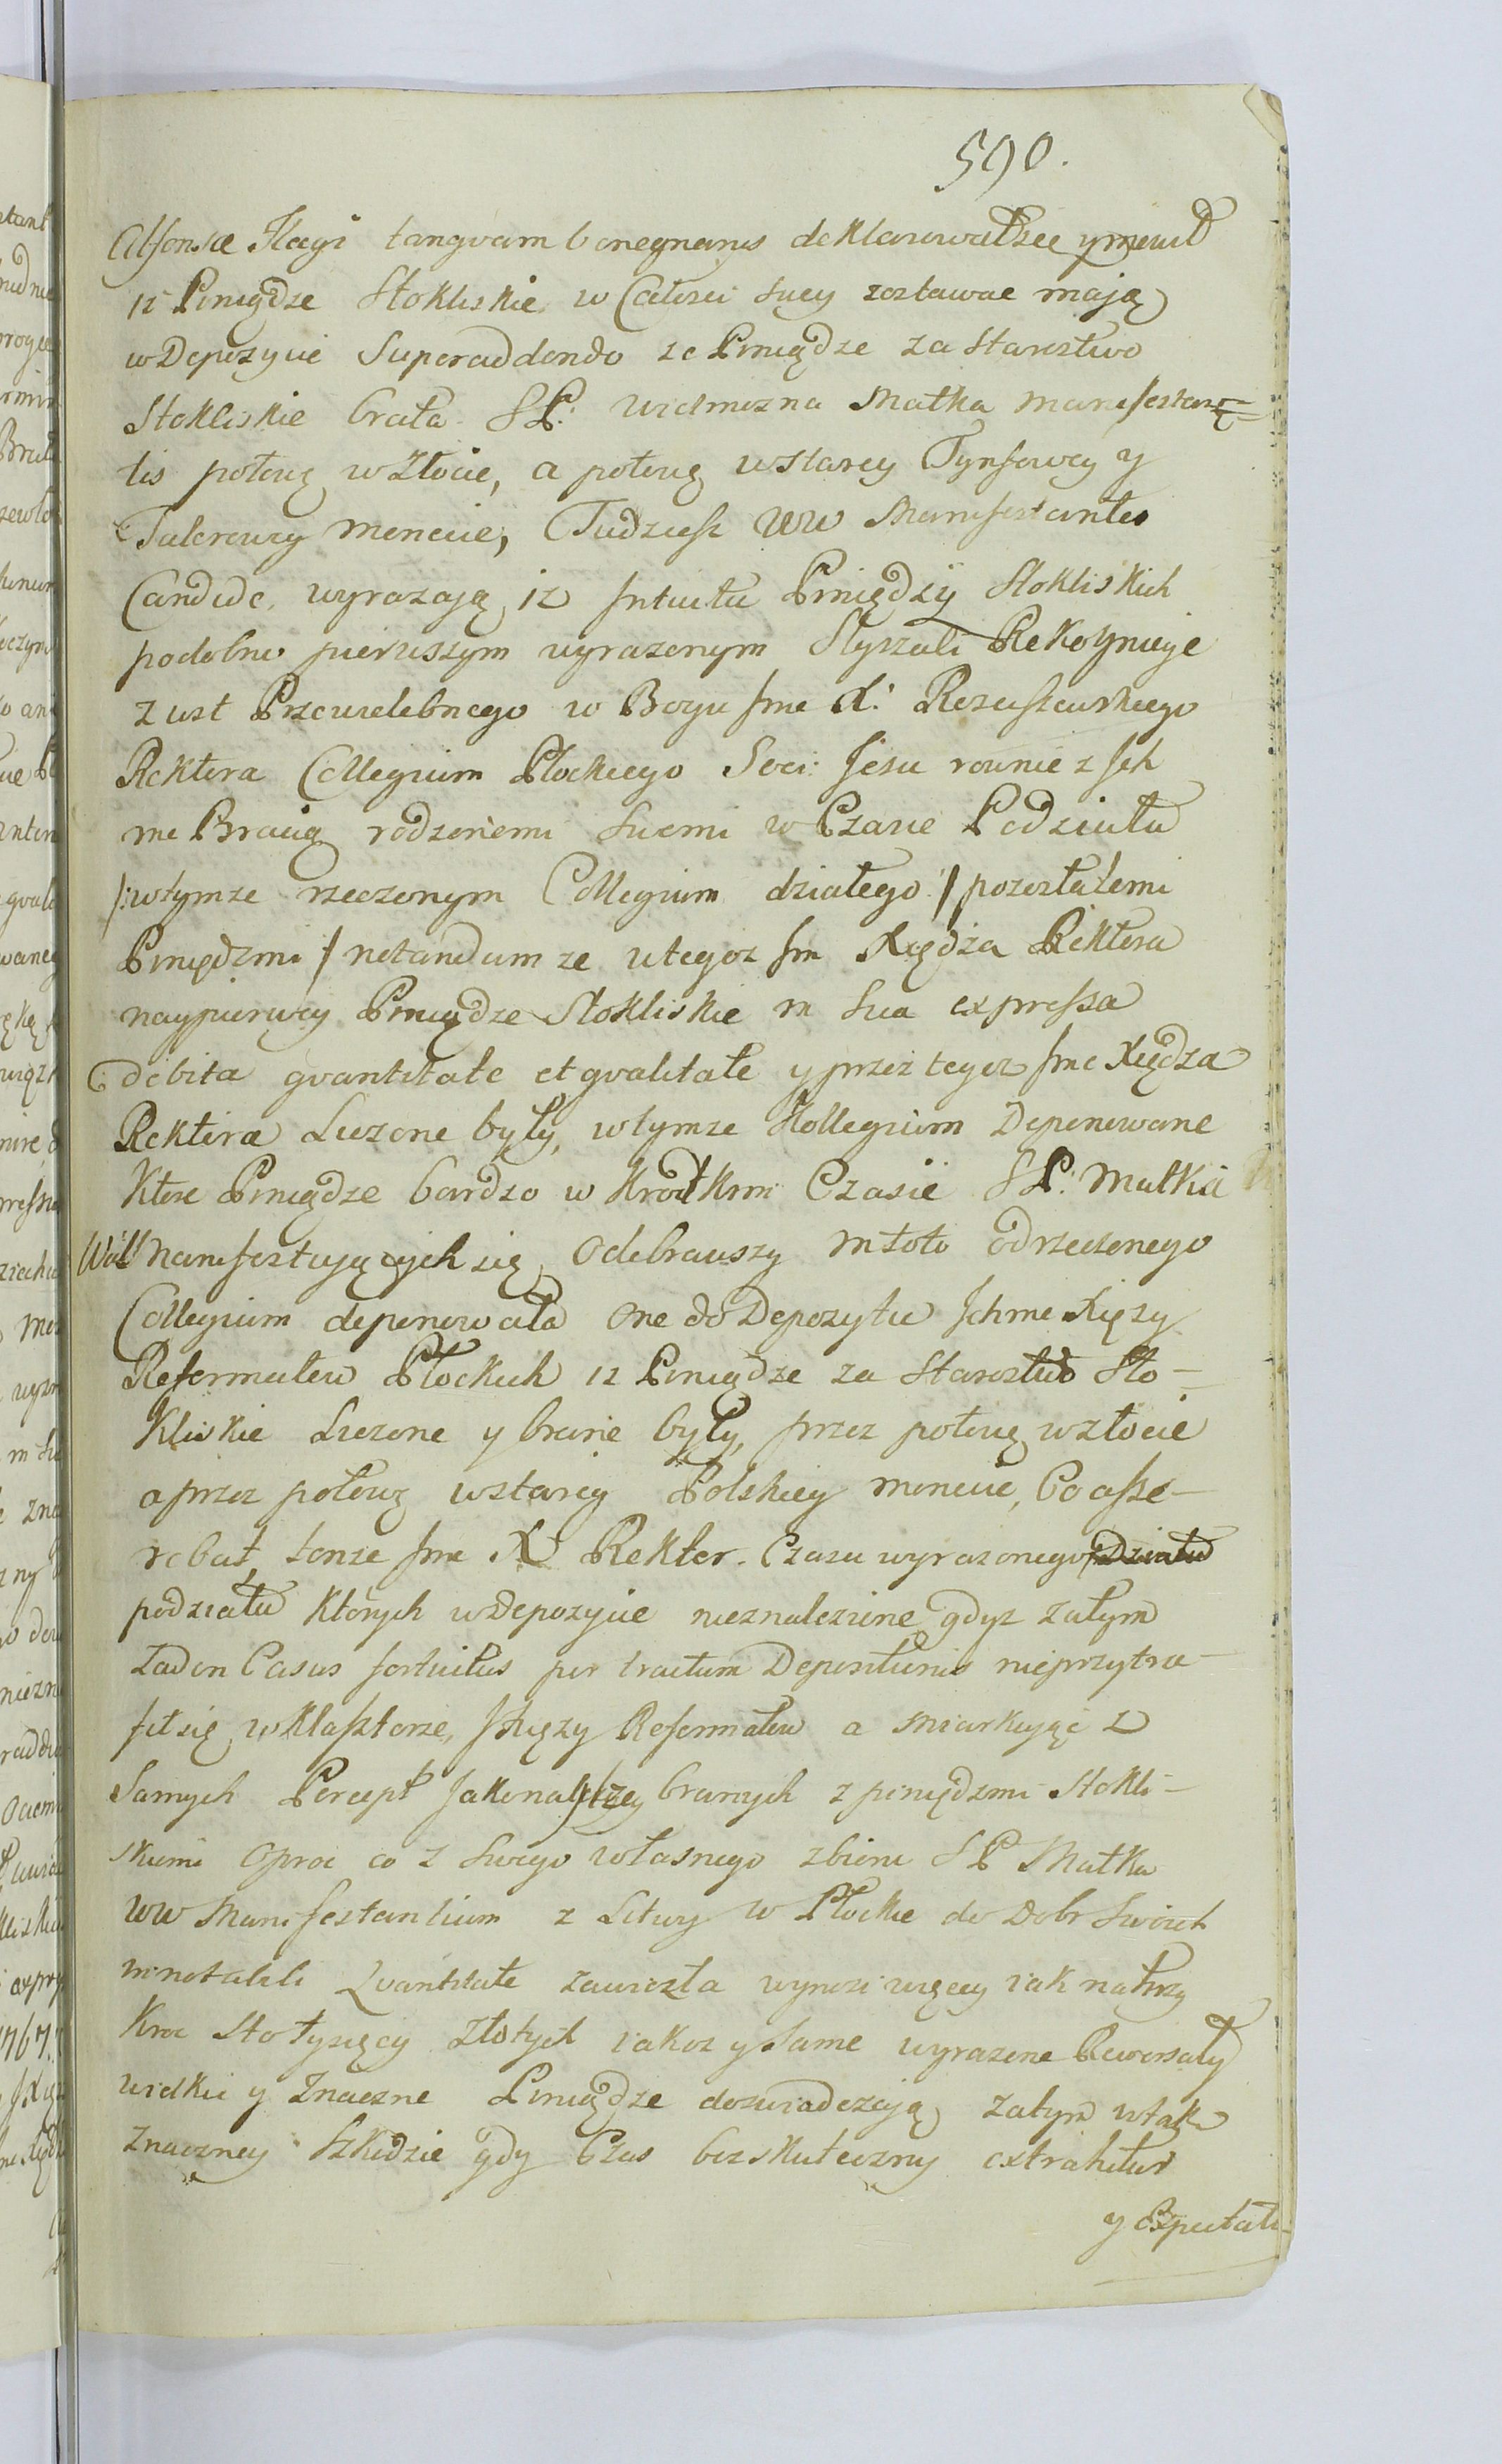 590.
Alfonsa Flagi tanqvam bonegnarus deklarowałsię y mewił
iz Piniądze Stokliskie w Całosci swey zostawac mają
w Depozycie Superaddendo ze Piniądze za Starostwo
Stokliskie brała SP: Wielmozna Matka manifestan=
tis połowę w Złocie, a połowę w starey Tynfowey y
Talerowey monecie, Tudziesz WW Manifestantes
Candide wyrazają iz Intuitu Piniędzy Stokliskich
podobne pierwszym wyrazonym Słyszali Rekognicye
z ust Przewielebnego w Bogu Jme X: Rosciszewskiego
Rektora Collegium Płockiego Soci: Jesu rownie z Ich
me Bracią rodzonemi swemi w Czasie Podziału
/:w tymze rzeczonym Collegium działego:/ pozostałemi
Piniędzmi / notandum ze u tegoz Jm Xiędza Rektora
naypierwey Piniądze Stokliskie in sua expressa
debita qvantitate et qvalitate y przez tegoz Jme Xiędza
Rektora Liczone były, w tymze Kollegium Deponowane
Ktore Piniądze bardzo w krotkim Czasie SP: Matka
WW Manifestujących się, Odebrawszy in toto od rzeczonego
Collegium deponowała One do Depozytu Ichme Xięzy
Reformatow Płockich iz Piniądze za Starostwo Sto-
kliskie Liczone y brane były, przez połowę w złocie
a przez połowę w starey Polskiey monecie, Co asse-
rebat tenze Jme X Rektor. Czasu wyrazonego Działu
podziału ktorych w Depozycie nieznalezione gdyz zatym
zaden Casus fortuitus per tractum Depositionis nieprzytra-
fił się w Klasztorze, JXięzy Reformatow a miarkując z
Samych Percept Jakonay branych z piniędzmi Stokli-
skiemi Oproc co z Swego własnego zbioru SP Matka
WW Manifestantium z Litwy w Płockie do Dobr Swoich
in notabili Qvantitate zawiozła wynosi więcey iak na trzy
Kroc Sto tysięcy Złotych iakoz y Same wyrazone Rewersały
wielkie y Znaczne Piniądze doswiadczają, Zatym w tak
Znaczney Szkodzie gdy Czas bezskuteczny extrahitur
y Expectati-